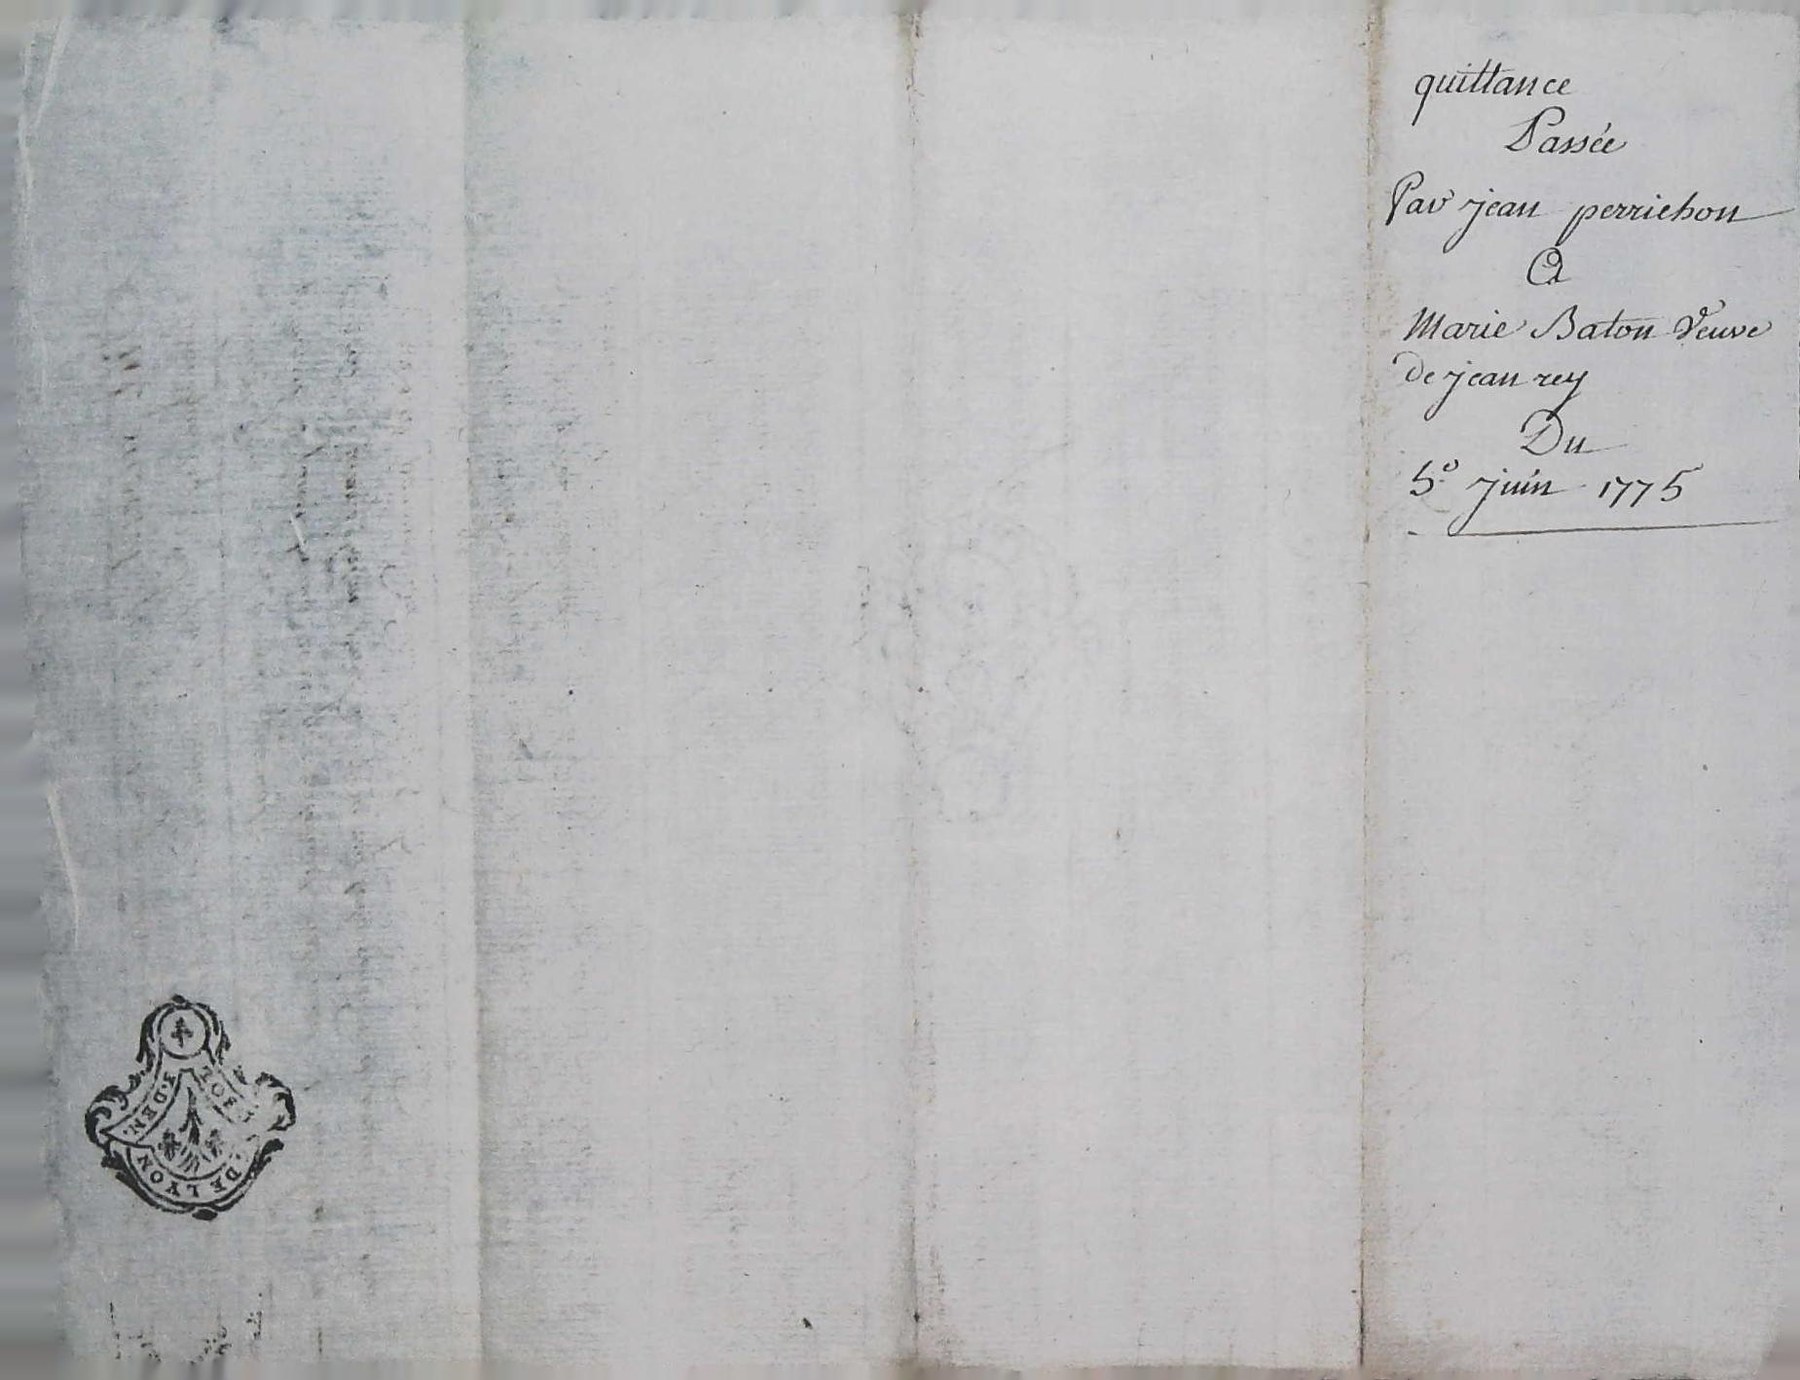 quittance
Passée
Par jean perrichon
A
Marie Baton Veuve
de jean rey
Du
5.º juin 1775
SOL
3.DEN.
DE LYON